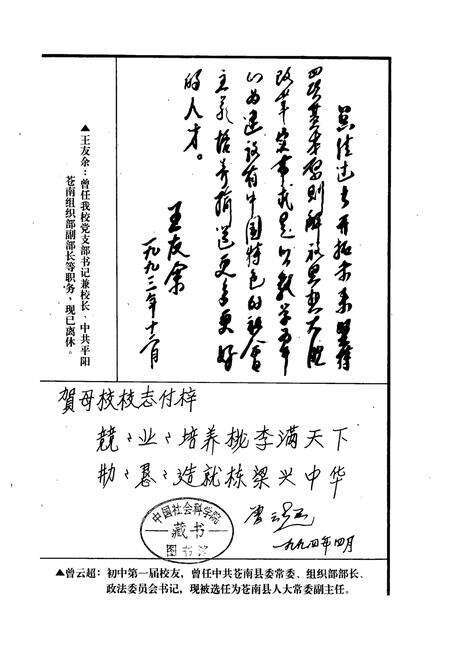 总结过去开拓未来坚持
四项基本原则解放思想大胆
改革实事求是以教学为中
心为建设有中国特色的社会
主义培养输送更多更好
的人才。
王友余
一九九三年十二月
▲王友余：曾任我校党支部书记兼校长、中共平阳
苍南组织部副部长等职务，现已离休。
贺母校校志付梓
兢兢业业培养桃李满天下
勤勤恳恳造就栋梁兴中华
曾云超
一九九四年四月
中国社会科学院
藏书
图书馆
▲曾云超：初中第一届校友，曾任中共苍南县委常委、组织部部长、
政法委员会书记，现被选任为苍南县人大常委副主任。